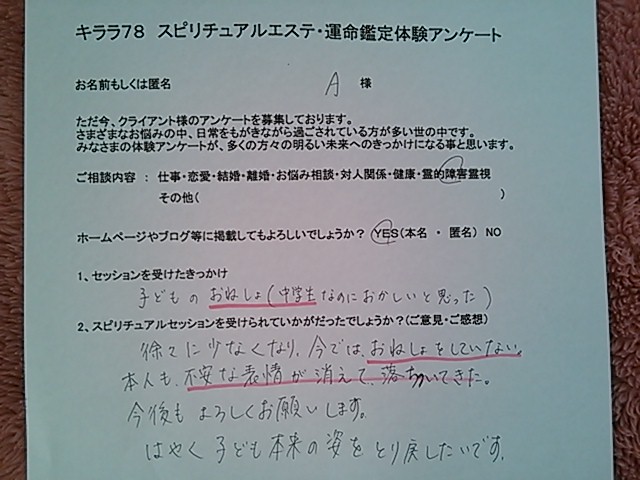 キララ78 スピリチュアルエステ・運命鑑定体験アンケート
お名前もしくは匿名 A 様
ただ今、クライアント様のアンケートを募集しております。
さまざまなお悩みの中、日常をもがきながら過ごされている方が多い世の中です。
みなさまの体験アンケートが、多くの方々の明るい未来へのきっかけになる事と思います。
ご相談内容 : 仕事・恋愛・結婚・離婚・お悩み相談・対人関係・健康・霊的障害霊視
その他( )
ホームページやブログ等に掲載してもよろしいでしょうか? YES(本名 ・ 匿名) NO
1、セッションを受けたきっかけ
子どもの おねしょ(中学生なのにおかしいと思った)
2、スピリチュアルセッションを受けられていかがだったでしょうか?(ご意見・ご感想)
徐々に少なくなり、今では、おねしょをしていない。
本人も、不安な表情が消えて、落ちついてきた。
今後もよろしくお願いします。
はやく子ども本来の姿をとり戻したいです。